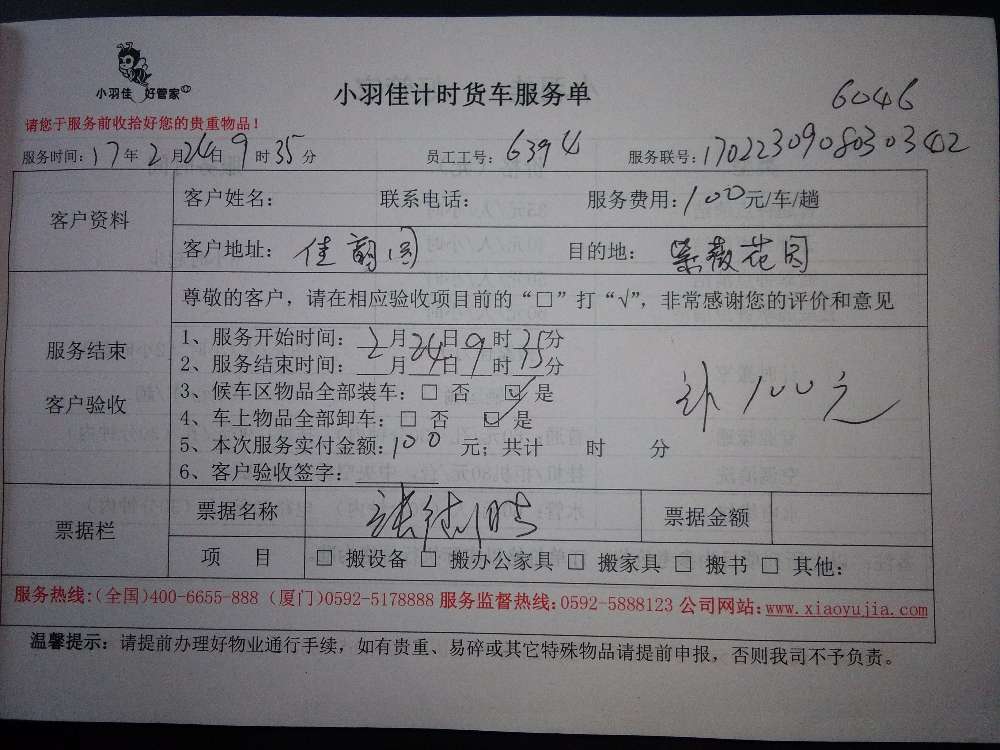 小羽佳 好管家
小羽佳计时货车服务单
6046
请您于服务前收拾好您的贵重物品！
服务时间：17年2月24日9时35分 员工工号：6394 服务联号：17022309080303402
客户资料
客户姓名： 联系电话： 服务费用：100元/车/趟
客户地址：佳韵园 目的地：紫薇花园
服务结束
客户验收
尊敬的客户，请在相应验收项目前的“□”打“√”，非常感谢您的评价和意见
1、服务开始时间：2月24日9时35分
2、服务结束时间：__月__日__时__分
3、候车区物品全部装车：□ 否 ☑ 是
4、车上物品全部卸车：□ 否 ☑ 是
5、本次服务实付金额：100 元；共计 时 分
6、客户验收签字：
100元
票据栏
票据名称 票据金额
项 目 □ 搬设备 □ 搬办公家具 □ 搬家具 □ 搬书 □ 其他：
服务热线：（全国）400-6655-888（厦门）0592-5178888 服务监督热线：0592-5888123 公司网站：www.xiaoyujia.com
温馨提示：请提前办理好物业通行手续，如有贵重、易碎或其它特殊物品请提前申报，否则我司不予负责。